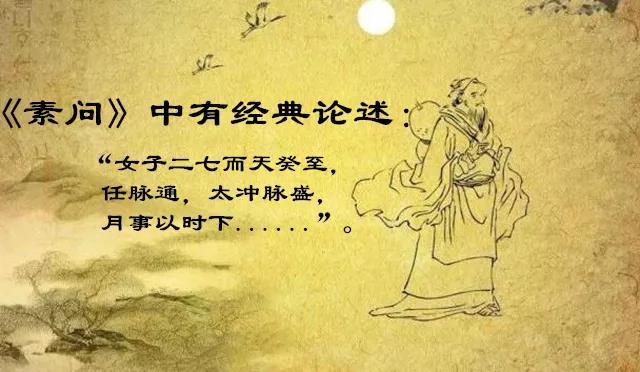 《素问》中有经典论述：
“女子二七而天癸至，
任脉通，太冲脉盛，
月事以时下......”。